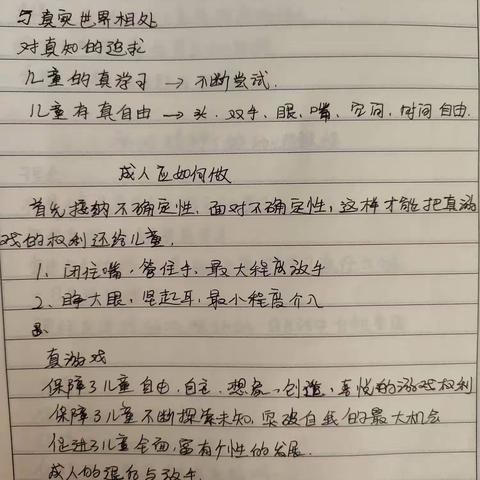 与真实世界相处
对真知的追求
儿童的真学习 → 不断尝试.
儿童有真自由 → 头、双手、眼、嘴、空间、时间自由.
成人应如何做
首先接纳不确定性,面对不确定性,这样才能把真游
戏的权利还给儿童.
1、闭住嘴,管住手,最大程度放手
2、睁大眼,竖起耳,最小程度介入
真游戏
保障了儿童自由、自主、想象、创造、喜悦的游戏权利
保障了儿童不断探索未知,突破自我的最大机会
促进了儿童全面,富有个性的发展.
成人的退后与放手.